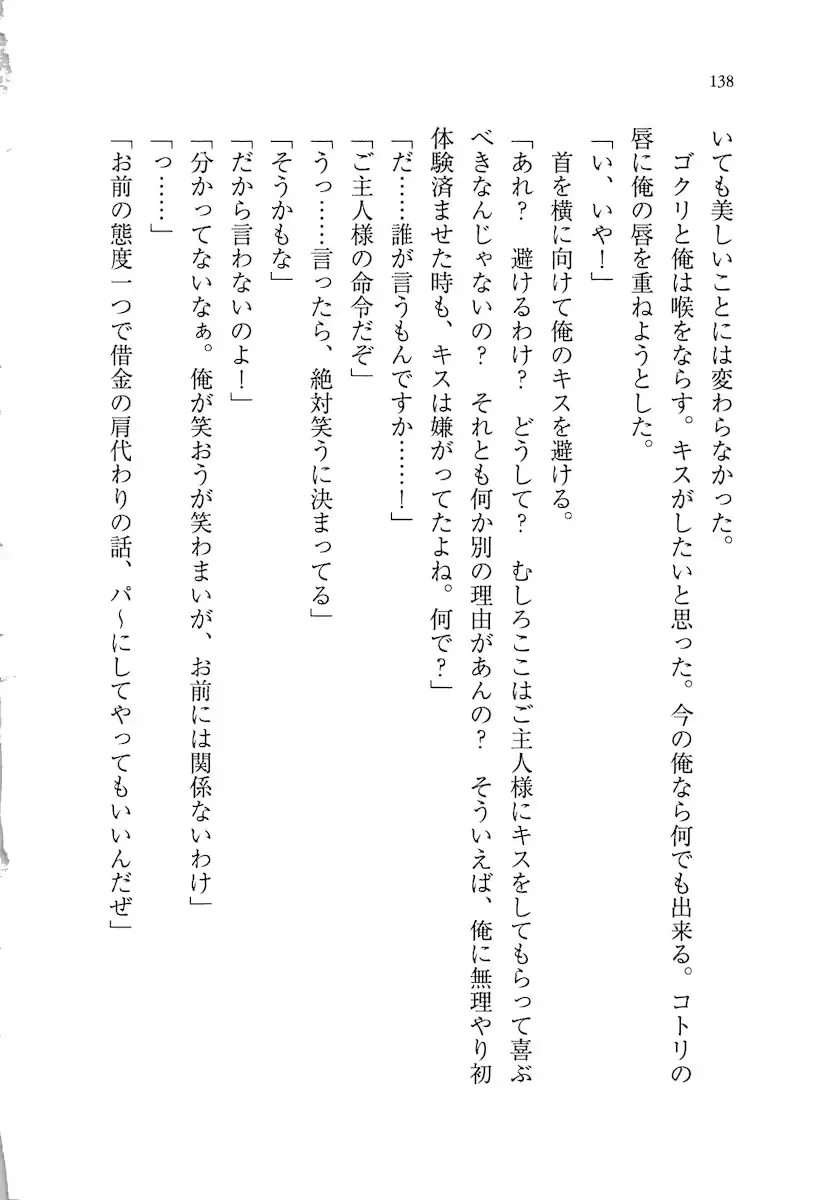 138
いても美しいことには変わらなかった。
　ゴクリと俺は喉をならす。キスがしたいと思った。今の俺なら何でも出来る。コトリの
唇に俺の唇を重ねようとした。
「い、いや！」
　首を横に向けて俺のキスを避ける。
「あれ？　避けるわけ？　どうして？　むしろここはご主人様にキスをしてもらって喜ぶ
べきなんじゃないの？　それとも何か別の理由があんの？　そういえば、俺に無理やり初
体験済ませた時も、キスは嫌がってたよね。何で？」
「だ……誰が言うもんですか……！」
「ご主人様の命令だぞ」
「うっ……言ったら、絶対笑うに決まってる」
「そうかもな」
「だから言わないのよ！」
「分かってないなぁ。俺が笑おうが笑わまいが、お前には関係ないわけ」
「っ……」
「お前の態度一つで借金の肩代わりの話、パ～にしてやってもいいんだぜ」